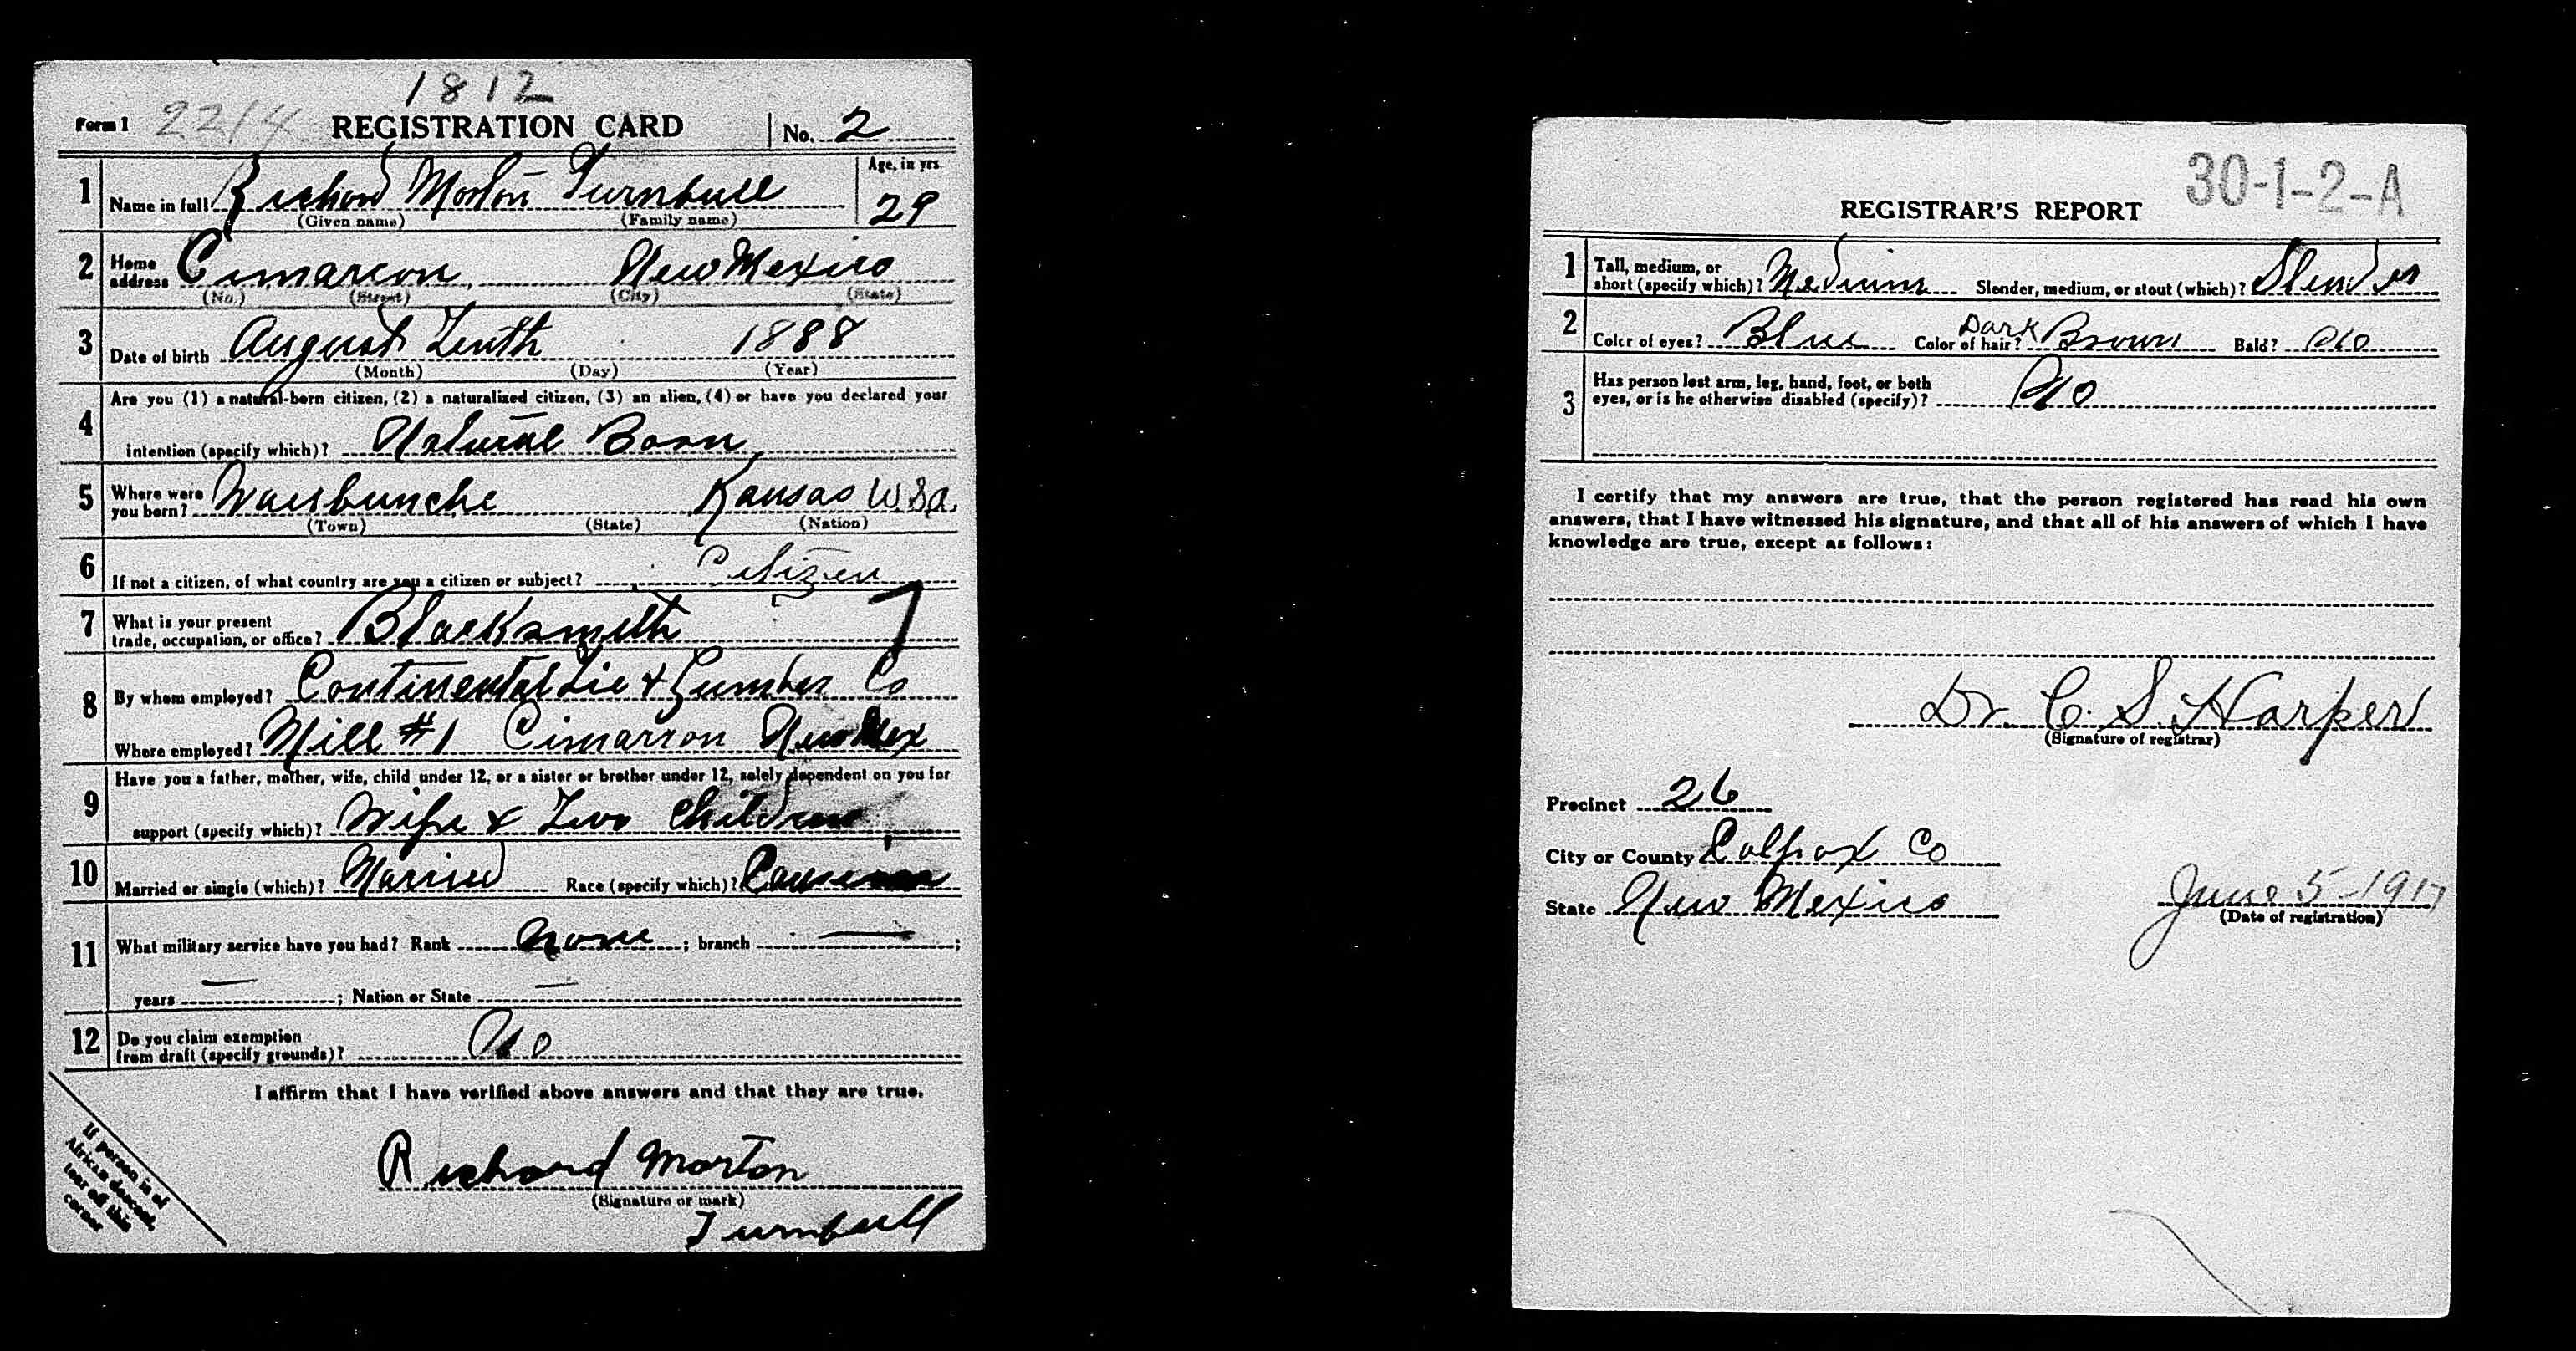 1812
Form 1 2214 REGISTRATION CARD No. 2
1 Name in full Richard Morton Turnbull Age, in yrs. 29
(Given name) (Family name)
2 Home address Cimarron, New Mexico
(No.) (Street) (City) (State)
3 Date of birth August Tenth 1888
(Month) (Day) (Year)
4 Are you (1) a natural-born citizen, (2) a naturalized citizen, (3) an alien, (4) or have you declared your
intention (specify which)? Natural Born
5 Where were you born? Kansas U.S.A.
(Town) (State) (Nation)
6 If not a citizen, of what country are you a citizen or subject? Citizen
7 What is your present trade, occupation, or office? Blacksmith 7
8 By whom employed? Continental Tie & Lumber Co
Where employed? Mill #1 Cimarron New Mex
9 Have you a father, mother, wife, child under 12, or a sister or brother under 12, solely dependent on you for
support (specify which)? Wife & Two Children
10 Married or single (which)? Married Race (specify which)?
11 What military service have you had? Rank None ; branch — ;
years — ; Nation or State —
12 Do you claim exemption
from draft (specify grounds)? No
I affirm that I have verified above answers and that they are true.
Richard Morton
(Signature or mark)
Turnbull
If person is of
African descent,
tear off this
corner
30-1-2-A
REGISTRAR'S REPORT
1 Tall, medium, or
short (specify which)? Medium Slender, medium, or stout (which)? Slender
2 Color of eyes? Blue Color of hair? Dark Brown Bald? No
3 Has person lost arm, leg, hand, foot, or both
eyes, or is he otherwise disabled (specify)? No
I certify that my answers are true, that the person registered has read his own
answers, that I have witnessed his signature, and that all of his answers of which I have
knowledge are true, except as follows:
Dr. C. S. Harper
(Signature of registrar)
Precinct 26
City or County Colfax Co
State New Mexico June 5-1917
(Date of registration)